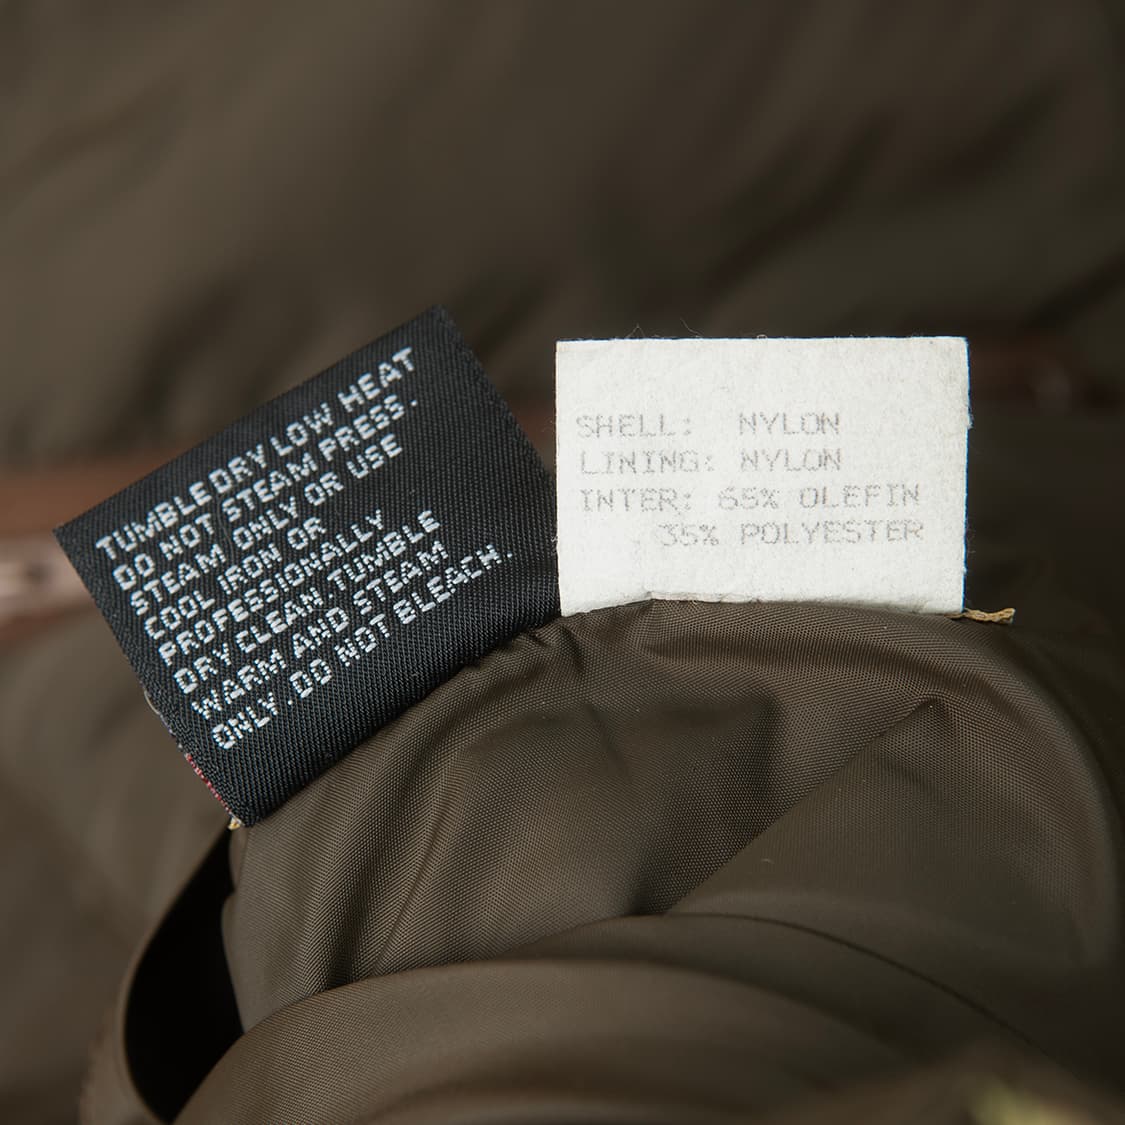 TUMBLE DRY LOW HEAT
DO NOT STEAM PRESS.
STEAM ONLY OR USE
COOL IRON OR
PROFESSIONALLY
DRY CLEAN, TUMBLE
WARM AND STEAM
ONLY. DO NOT BLEACH.
SHELL: NYLON
LINING: NYLON
INTER: 65% OLEFIN
35% POLYESTER